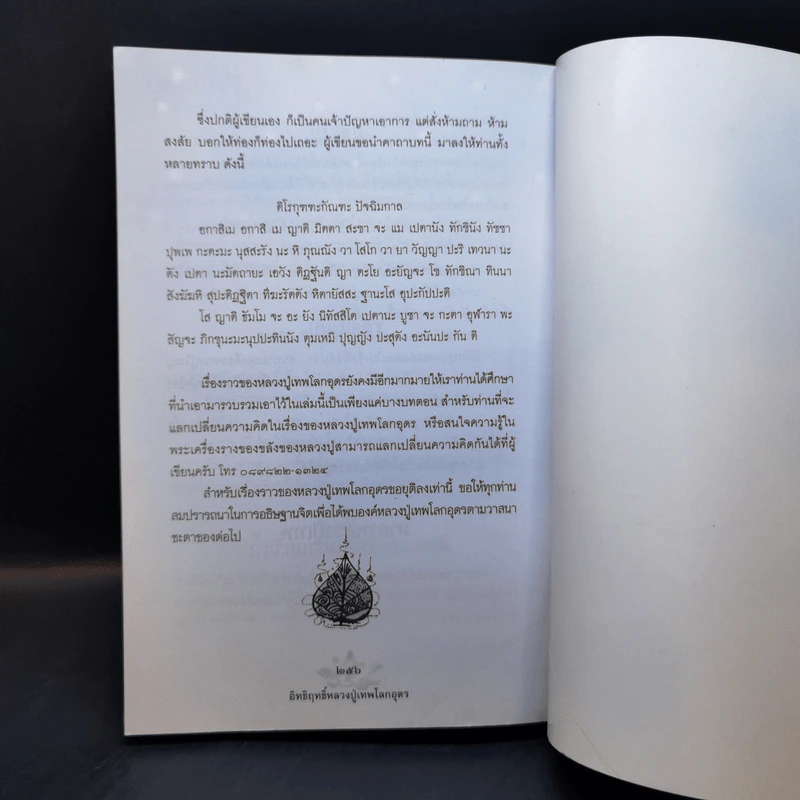 ซึ่งปกติผู้เขียนเอง ก็เป็นคนเจ้าปัญหาเอาการ แต่สั่งห้ามถาม ห้าม
สงสัย บอกให้ท่องก็ท่องไปเถอะ ผู้เขียนขอนำคาถาบทนี้ มาลงให้ท่านทั้ง
หลายทราบ ดังนี้
ติโรกุฑฑะกัณฑะ ปัจฉิมกาล
อกาสิเม อกาสิ เม ญาติ มิตตา สะขา จะ เม เปตานัง ทักขินัง ทัชชา
ปุพเพ กะตะมะ นุสสะรัง นะ หิ ภุณณัง วา โสโก วา ยา วัญญา ปะริ เทวนา นะ
ตัง เปตา นะมัตถายะ เอวัง ติฏฐันติ ญา ตะโย อะยัญจะ โข ทักขิณา ทินนา
สังฆัมหิ สุปะติฏฐิตา ทีฆะรัตตัง หิตายัสสะ ฐานะโส อุปะกัปปะติ
โส ญาติ ธัมโม จะ อะ ยัง นิทัสสิโต เปตานะ บูชา จะ กะตา อุฬารา พะ
ลัญจะ ภิกขุนะมะนุปปะทินนัง ตุมเหหิ ปุญญัง ปะสุตัง อะนันปะ กัน ติ
เรื่องราวของหลวงปู่เทพโลกอุดรยังคงมีอีกมากมายให้เราท่านได้ศึกษา
ที่นำเอามารวบรวมเอาไว้ในเล่มนี้เป็นเพียงแค่บางบทตอน สำหรับท่านที่จะ
แลกเปลี่ยนความคิดในเรื่องของหลวงปู่เทพโลกอุดร หรือสนใจความรู้ใน
พระเครื่องรางของขลังของหลวงปู่สามารถแลกเปลี่ยนความคิดกันได้ที่ผู้
เขียนครับ โทร ๐๘๙๘๒๒-๑๓๒๔
สำหรับเรื่องราวของหลวงปู่เทพโลกอุดรขอยุติลงเท่านี้ ขอให้ทุกท่าน
สมปรารถนาในการอธิษฐานจิตเพื่อได้พบองค์หลวงปู่เทพโลกอุดรตามวาสนา
ชะตาของต่อไป
๒๕๖
อิทธิฤทธิ์หลวงปู่เทพโลกอุดร